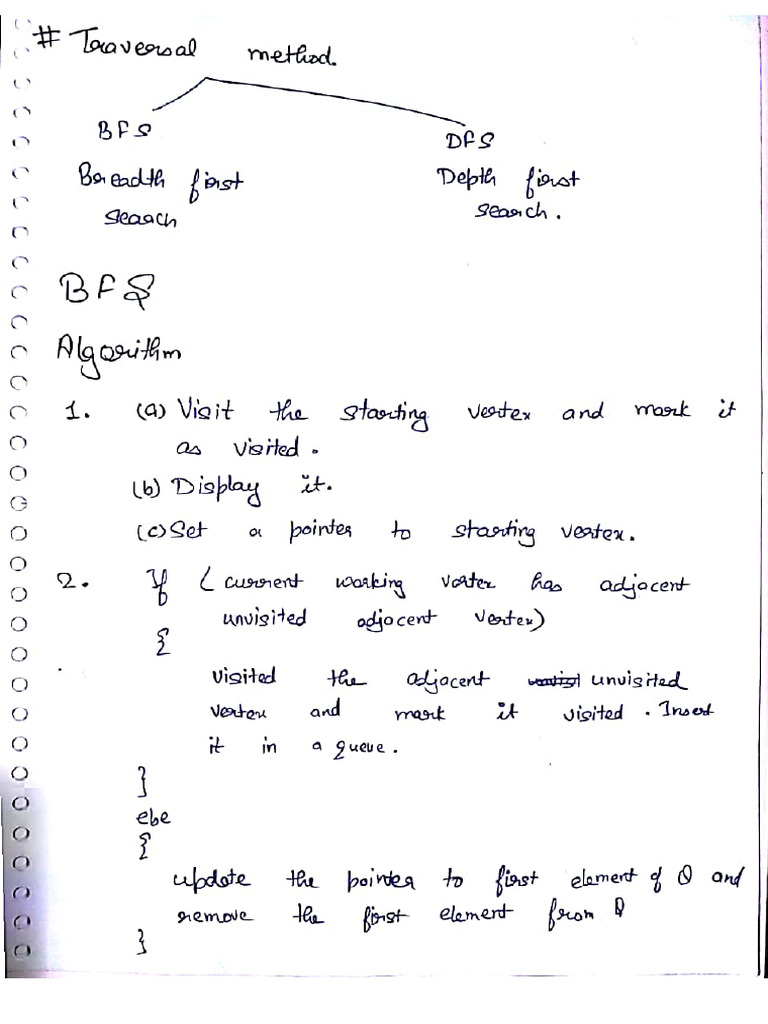 # Traversal method.
BFS DFS
Breadth first Depth first
search search.
BFS
Algorithm
1. (a) Visit the starting vertex and mark it
as visited.
(b) Display it.
(c) Set a pointer to starting vertex.
2. If (current working vertex has adjacent
unvisited adjacent vertex)
{
visited the adjacent unvisited
vertex and mark it visited. Insert
it in a queue.
}
else
{
update the pointer to first element of Q and
remove the first element from Q
}